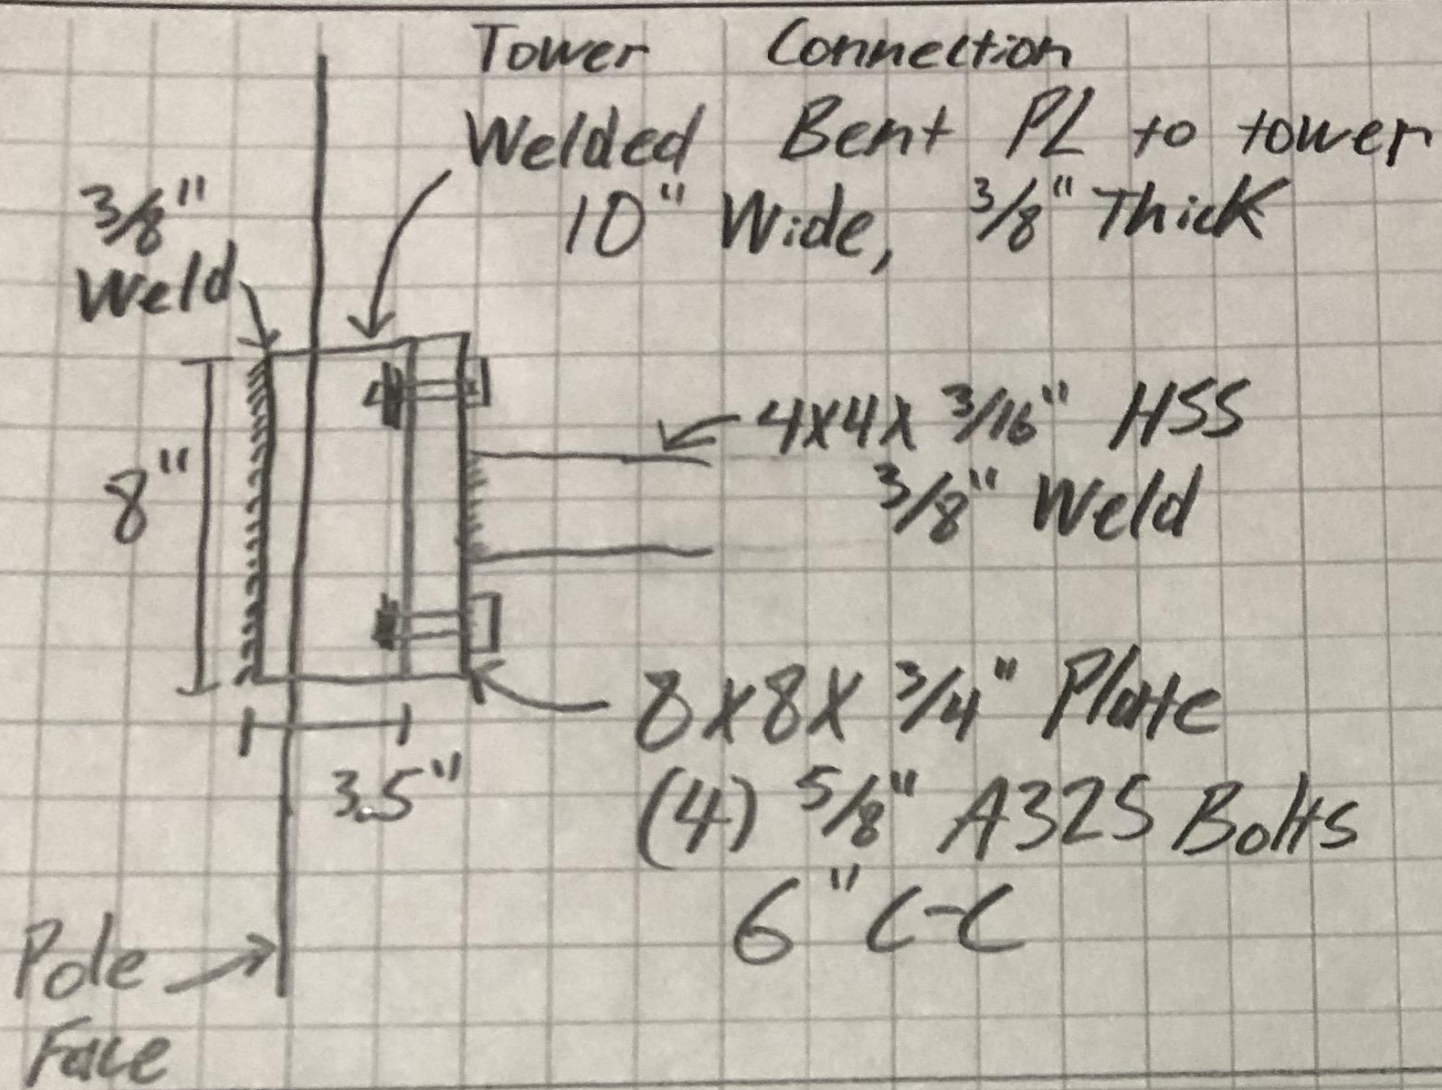 Tower Connection
Welded Bent PL to tower
10" Wide, 3/8" Thick
3/8"
Weld
8"
4x4x 3/16" HSS
3/8" Weld
3.5"
8x8x 3/4" Plate
(4) 5/8" A325 Bolts
6" C-C
Pole
Face